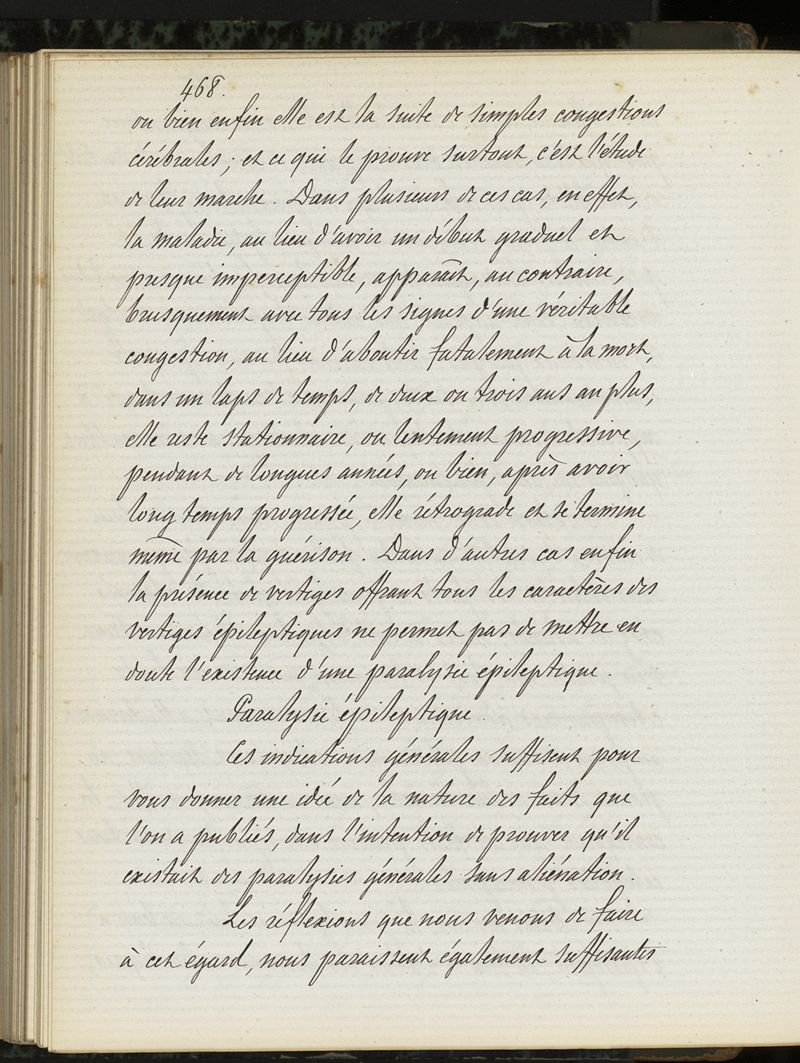 468.
ou bien enfin elle est la suite de simples congestions
cérébrales ; et ce qui le prouve surtout, c'est l'étude
de leur marche. Dans plusieurs de ces cas, en effet,
la maladie, au lieu d'avoir un début graduel et
presque imperceptible, apparaît, au contraire,
brusquement avec tous les signes d'une véritable
congestion, au lieu d'aboutir fatalement à la mort,
dans un laps de temps, de deux ou trois ans au plus,
elle reste stationnaire, ou lentement progressive,
pendant de longues années, ou bien, après avoir
long temps progressée, elle rétrograde et se termine
même par la guérison. Dans d'autres cas enfin
la présence de vertiges offrant tous les caractères des
vertiges épileptiques ne permet pas de mettre en
doute l'existence d'une paralysie épileptique.
Paralysie épileptique.
Ces indications générales suffisent pour
vous donner une idée de la nature des faits que
l'on a publiés, dans l'intention de prouver qu'il
existait des paralysies générales sans aliénation.
Les réflexions que nous venons de faire
à cet égard, nous paraissent également suffisantes